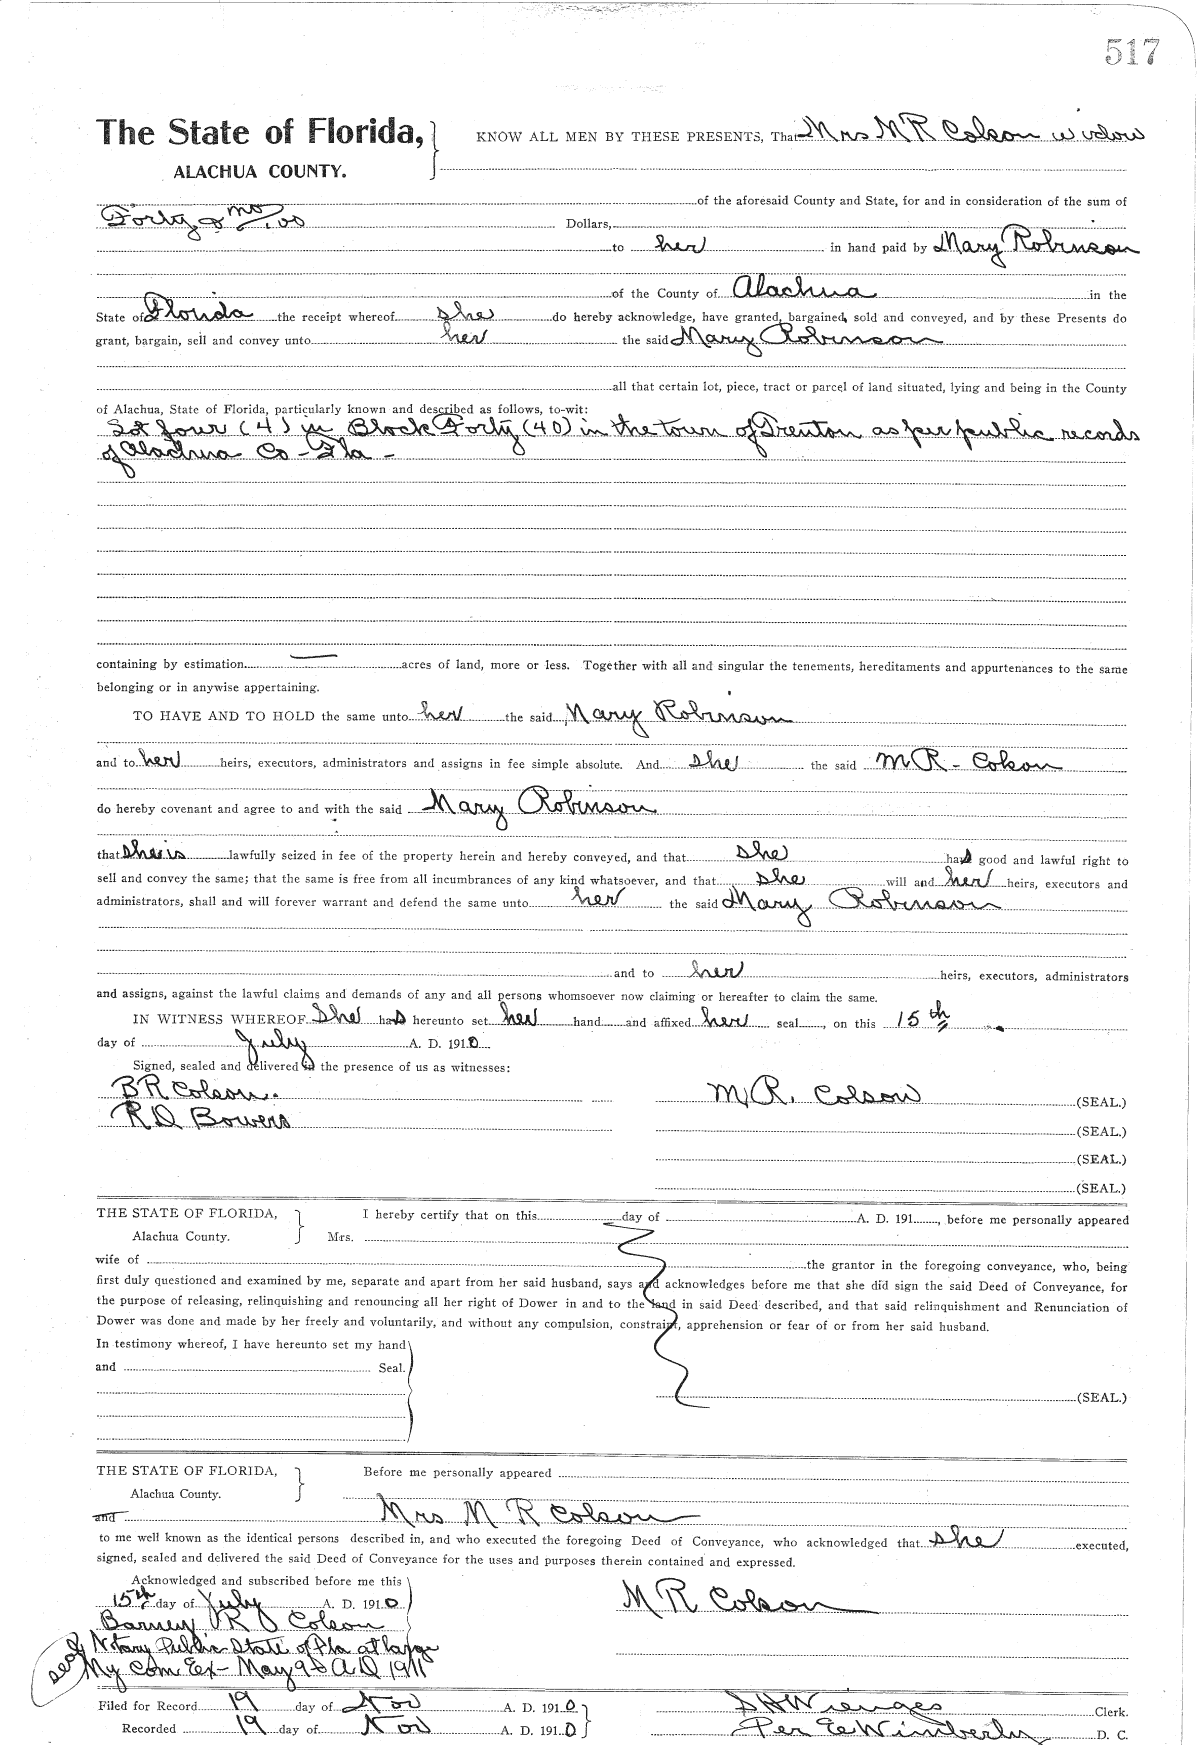 517
The State of Florida, KNOW ALL MEN BY THESE PRESENTS, That Mrs M R Colson widow
ALACHUA COUNTY.
of the aforesaid County and State, for and in consideration of the sum of
Forty & no/100 Dollars,
to her in hand paid by Mary Robinson
of the County of Alachua in the
State of Florida the receipt whereof she do hereby acknowledge, have granted, bargained, sold and conveyed, and by these Presents do
grant, bargain, sell and convey unto her the said Mary Robinson
all that certain lot, piece, tract or parcel of land situated, lying and being in the County
of Alachua, State of Florida, particularly known and described as follows, to-wit:
Lot four (4) in Block Forty (40) in the town of Trenton as per public records
of Alachua Co - Fla -
containing by estimation — acres of land, more or less. Together with all and singular the tenements, hereditaments and appurtenances to the same
belonging or in anywise appertaining.
TO HAVE AND TO HOLD the same unto her the said Mary Robinson
and to her heirs, executors, administrators and assigns in fee simple absolute. And she the said M R - Colson
do hereby covenant and agree to and with the said Mary Robinson
that she is lawfully seized in fee of the property herein and hereby conveyed, and that she has good and lawful right to
sell and convey the same; that the same is free from all incumbrances of any kind whatsoever, and that she will and her heirs, executors and
administrators, shall and will forever warrant and defend the same unto her the said Mary Robinson
and to her heirs, executors, administrators
and assigns, against the lawful claims and demands of any and all persons whomsoever now claiming or hereafter to claim the same.
IN WITNESS WHEREOF She has hereunto set her hand and affixed her seal, on this 15th
day of July A. D. 1910.
Signed, sealed and delivered in the presence of us as witnesses:
B R Colson. M, R. Colson (SEAL.)
R D Bowers (SEAL.)
(SEAL.)
(SEAL.)
THE STATE OF FLORIDA, I hereby certify that on this day of A. D. 191, before me personally appeared
Alachua County. Mrs.
wife of the grantor in the foregoing conveyance, who, being
first duly questioned and examined by me, separate and apart from her said husband, says and acknowledges before me that she did sign the said Deed of Conveyance, for
the purpose of releasing, relinquishing and renouncing all her right of Dower in and to the land in said Deed described, and that said relinquishment and Renunciation of
Dower was done and made by her freely and voluntarily, and without any compulsion, constraint, apprehension or fear of or from her said husband.
In testimony whereof, I have hereunto set my hand
and Seal.
(SEAL.)
THE STATE OF FLORIDA, Before me personally appeared
Alachua County.
and Mrs M R Colson
to me well known as the identical persons described in, and who executed the foregoing Deed of Conveyance, who acknowledged that she executed,
signed, sealed and delivered the said Deed of Conveyance for the uses and purposes therein contained and expressed.
Acknowledged and subscribed before me this
15th day of July A. D. 1910 M R Colson
Barney R Colson
Notary Public State of Fla at large
Seal My Com Ex- May 9 A D 1911
Filed for Record 19 day of Nov A. D. 1910 S H Wienges Clerk.
Recorded 19 day of Nov A. D. 1910 Per E Wimberly D. C.